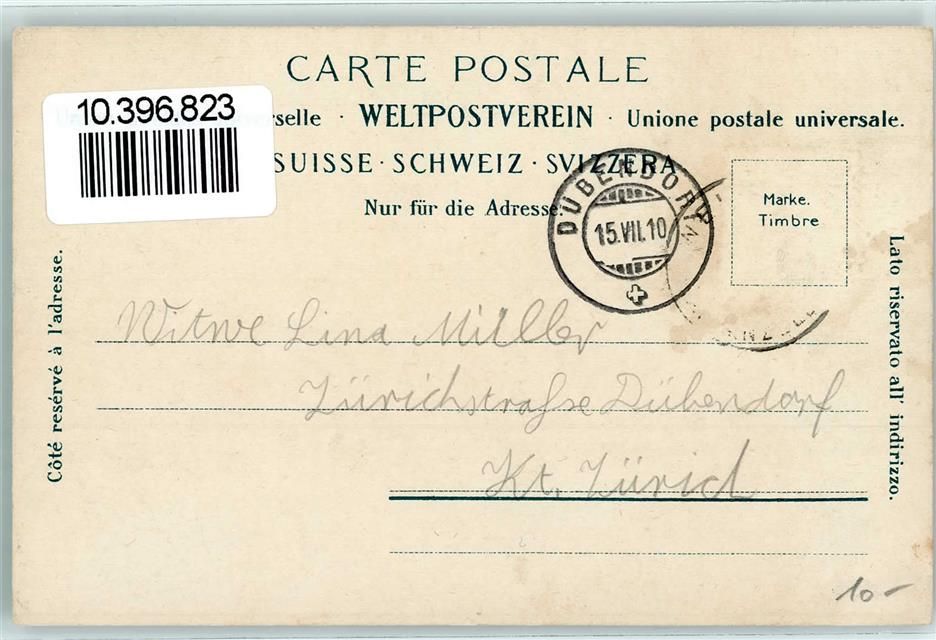 CARTE POSTALE
10.396.823
verselle · WELTPOSTVEREIN · Unione postale universale.
SUISSE · SCHWEIZ · SVIZZERA
Nur für die Adresse.
Marke.
Timbre
DÜBENDORF
15.VII.10
Côté resérvé à l'adresse.
Lato riservato all' indirizzo.
Witwe Lina Müller
Zürichstrasse Dübendorf
Kt. Zürich
10 –